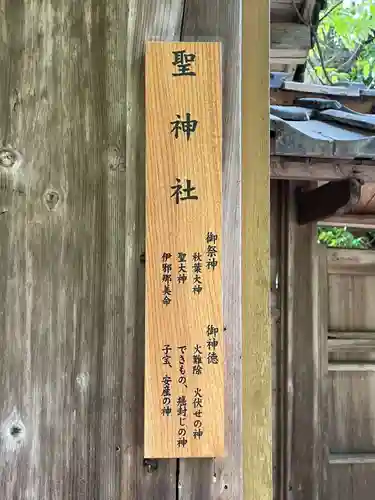 聖神社
御祭神
秋葉大神
聖大神
伊邪那美命
御神徳
火難除 火伏せの神
できもの、瘡封じの神
子宝、安産の神